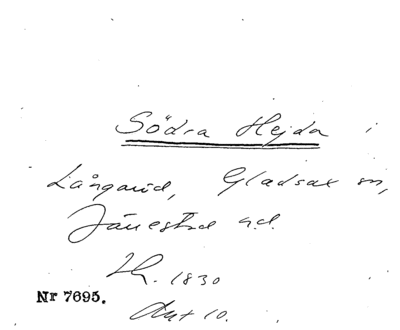 Södra Hejda i
Långaröd, Gladsax sn,
Järrestad hd.
Lh. 1830
Akt 10.
Nr 7695.